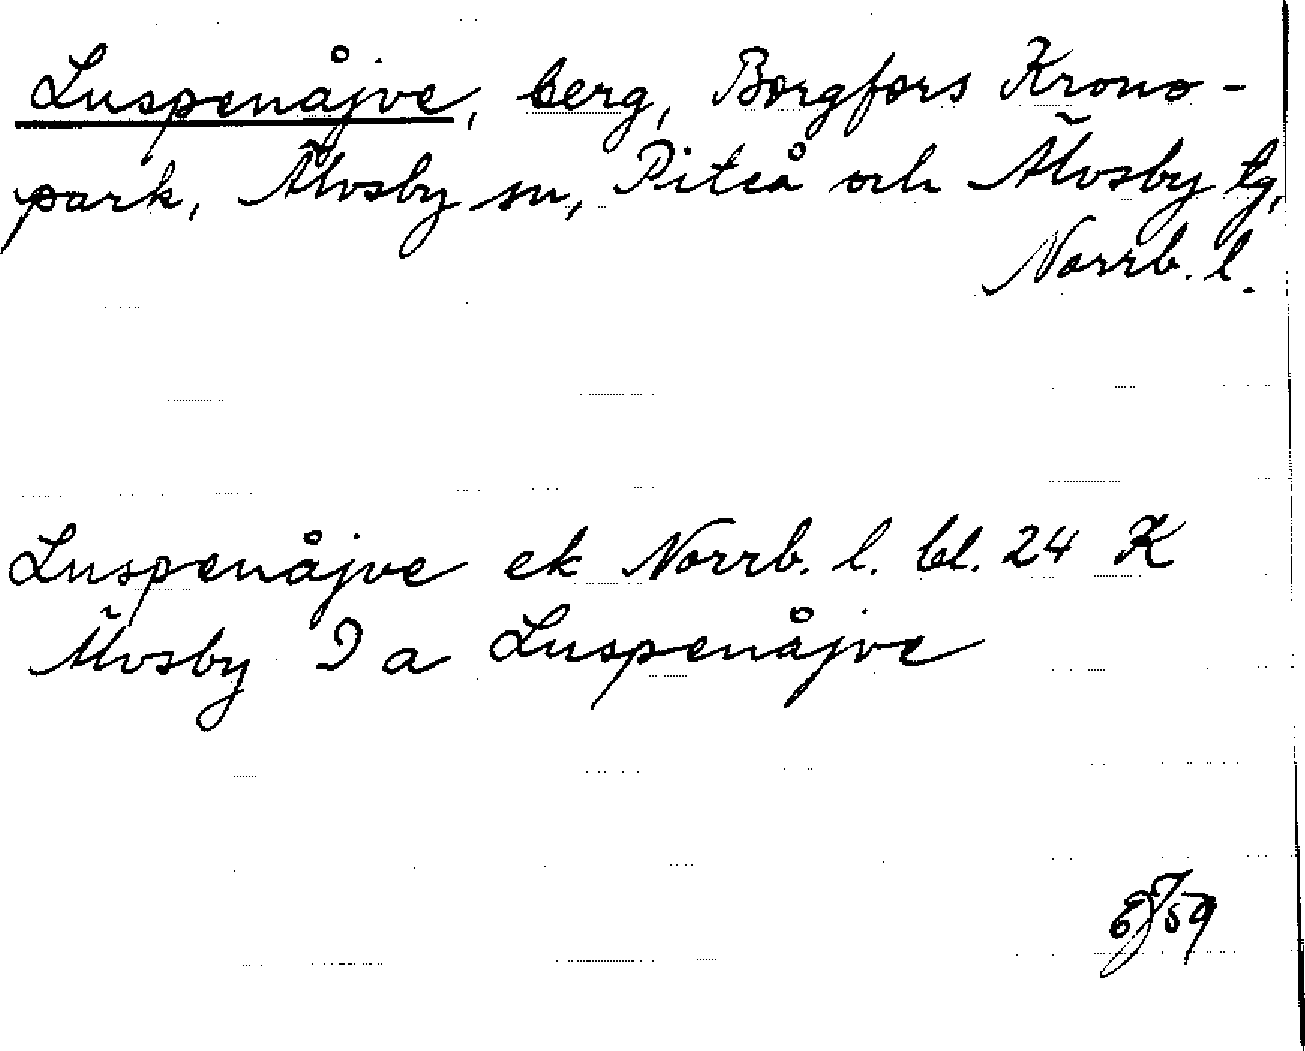 Luspenåjve, berg, Borgfors Krono-
park, Älvsby sn, Piteå och Älvsby tg,
Norrb. l.
Luspenåjve ek Norrb. l. bl. 24 K
Älvsby D a Luspenåjve